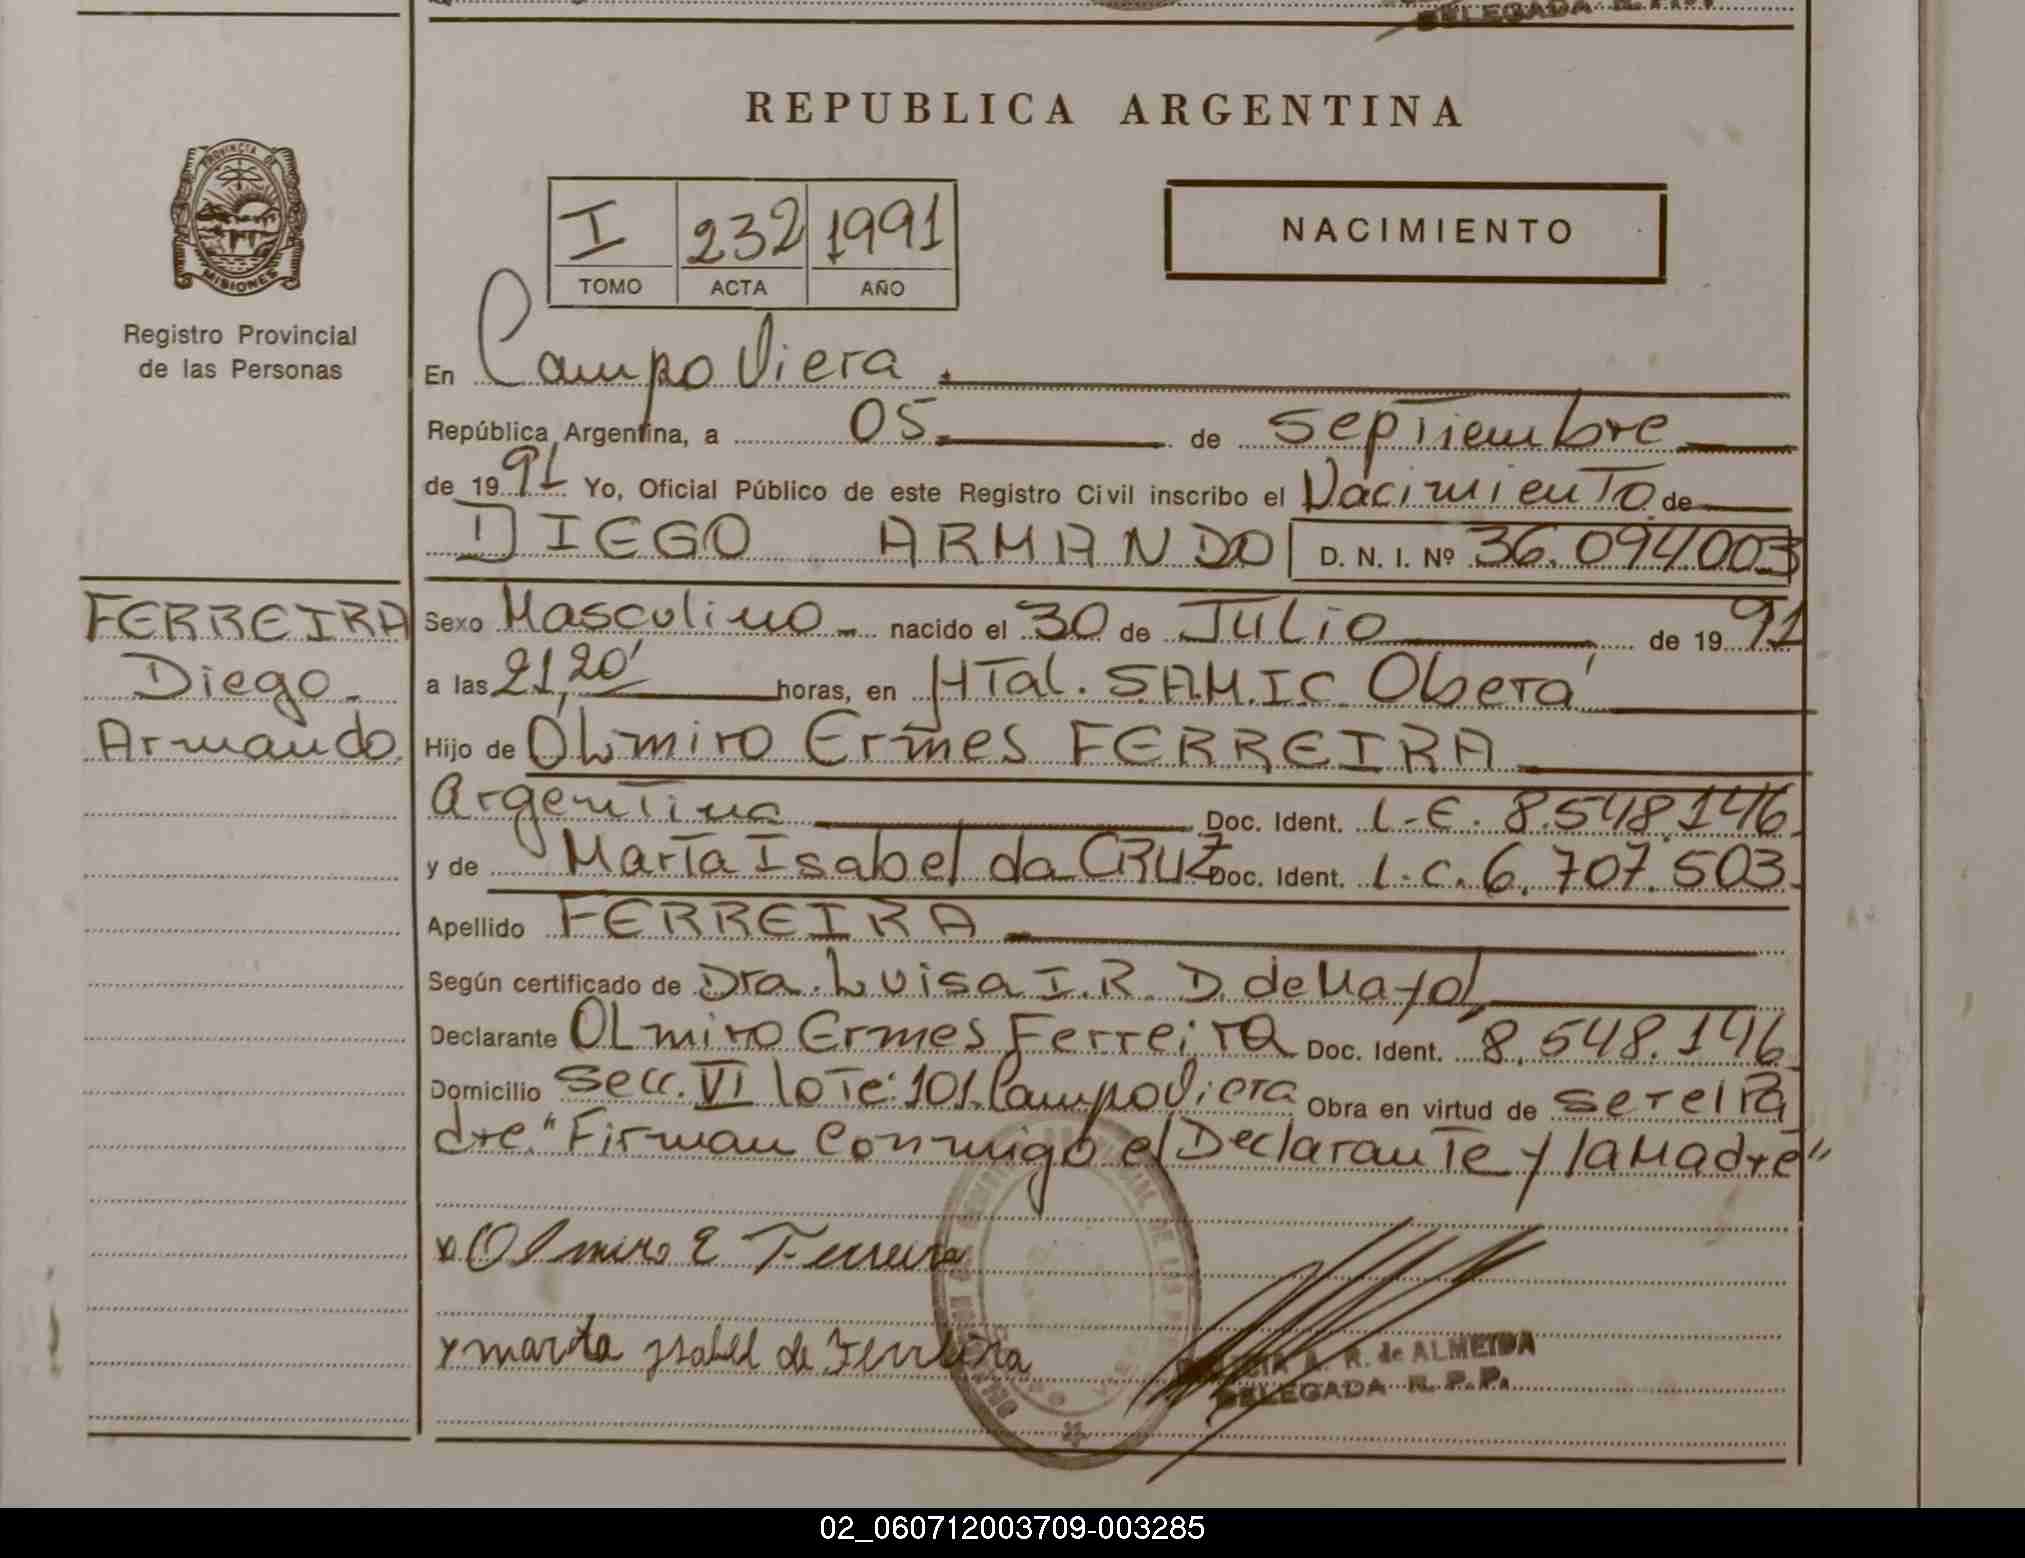 DELEGADA R.P.P.
REPUBLICA ARGENTINA
PROVINCIA DE
MISIONES
Registro Provincial
de las Personas
I 232 1991
TOMO ACTA AÑO
NACIMIENTO
En Campo Viera
República Argentina, a 05 de septiembre
de 1991 Yo, Oficial Público de este Registro Civil inscribo el Nacimiento de
DIEGO ARMANDO D. N. I. Nº 36.094.003
FERREIRA
Diego
Armando
Sexo Masculino nacido el 30 de Julio de 1991
a las 21,20' horas, en HTal. SAM.IC Oberá
Hijo de OLmiro Ermes FERREIRA
Argentina Doc. Ident. L.E. 8.548.146
y de Marta Isabel da CRUZ Doc. Ident. L.C. 6.707.503
Apellido FERREIRA
Según certificado de Dra. Luisa I.R. D. de Mayol
Declarante OLmiro Ermes Ferreira Doc. Ident. 8.548.146
Domicilio Secc. VI lote: 101. Campo Viera Obra en virtud de ser el Pa
dre. "Firman conmigo el Declarante y la Madre"
x Olmiro E Ferreira
x marta ysabel de Ferreira
A. R. de ALMEIDA
DELEGADA R.P.P.
02_060712003709-003285